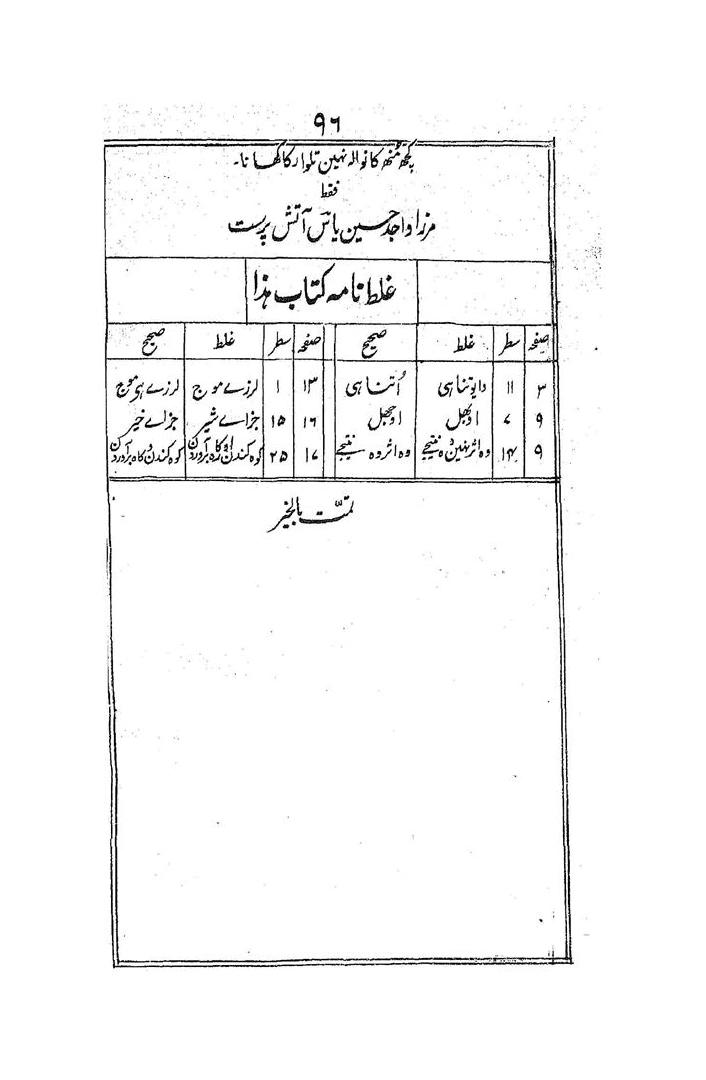 ۹۶
کچھ مُنھ کا نوالہ نہین تلوار کا کھانا۔
فقط
مرزا واجد حسین یاسؔ آتش پرست
غلط نامہ کتاب ہذا
صفحہ سطر غلط صحیح صفحہ سطر غلط صحیح
۳ ۱۱ اُتنا ہی ۱۳ ۱ لرزے موج لرزے ہی موج
۹ ۷ اوبھل اوجھل ۱۶ ۱۵ جزاے شیر جزاے خیر
۹ ۱۴ وہ اثر نہین وہ نتیجے وہ اثر وہ نتیجے ۱۷ ۲۵ کوہ کندن و کاہ برآوردن
تمّت بالخیر